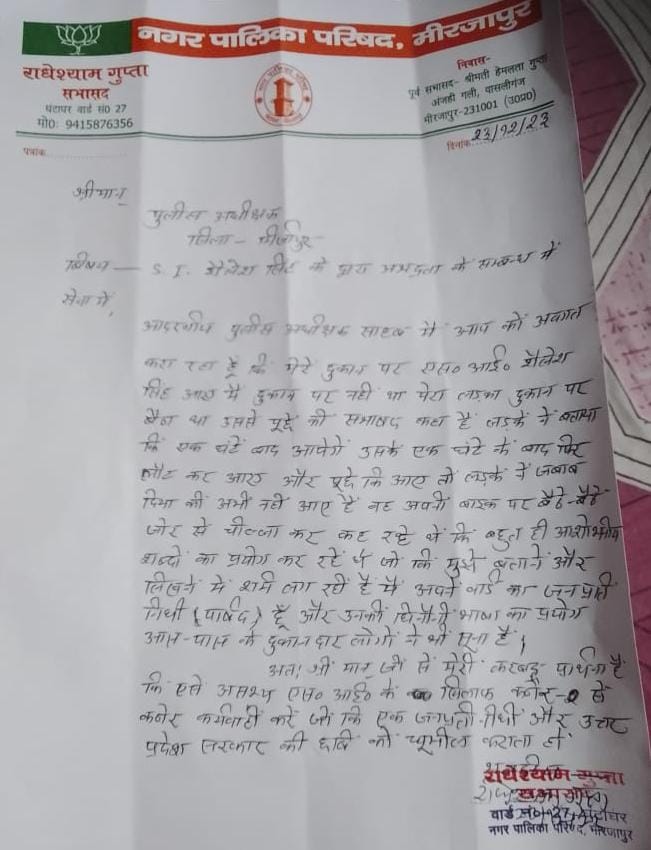 नगर पालिका परिषद, मीरजापुर
राधेश्याम गुप्ता
सभासद
घंटाघर वार्ड सं0 27
मो0: 9415876356
निवास-
पूर्व सभासद- श्रीमती हेमलता गुप्ता
अंजही गली, वासलीगंज
मीरजापुर-231001 (उ0प्र0)
पत्रांक
दिनांक 23/12/23
श्रीमान्
पुलीस अधीक्षक
जिला - मीर्जापुर
विषय — S. I. शैलेश सिंह के द्वारा अभद्रता के सम्बन्ध में
सेवा में,
आदरणीय पुलीस अधीक्षक साहब मैं आप को अवगत
करा रहा हूँ कि मेरे दुकान पर एस० आई० शैलेश
सिंह आए मैं दुकान पर नहीं था मेरा लड़का दुकान पर
बैठा था उससे पूछे की सभाषद कहा है लड़के ने बताया
कि एक घंटे बाद आयेगें उसके एक घंटे के बाद फिर
लौट कर आए और पूछे कि आए तो लड़के ने जबाब
दिया की अभी नही आए है वह अपनी बाइक पर बैठे-बैठे
जोर से चील्ला कर कह रहे थें कि बहुत ही
शब्दों का प्रयोग कर रहें थे जो कि मुझे बताने और
लिखने में शर्म लग रही है मैं अपने वार्ड का जनप्रती
निधी (पार्षद) हूँ और उनकी घिनौनी भाषा का प्रयोग
आस-पास के दुकानदार लोगों ने भी सूना है।
अतः श्री मान् जी से मेरी करबद्ध प्रार्थना है
कि एसे असभ्य एस० आई० के खिलाफ कठोर-2 से
कठोर कर्यवाही करें जो कि एक जनप्रती-निधी और उत्तर
प्रदेश सरकार की छवि को धूमील कराता हो
राधेश्याम गुप्ता
सभासद
वार्ड सं0-27, घंटाघर
नगर पालिका परिषद, मीरजापुर